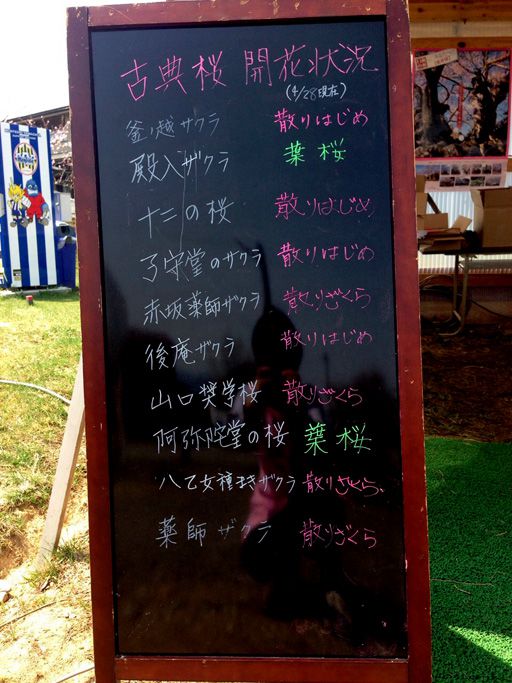 古典桜 開花状況
(4/28現在)
釜ノ越サクラ 散りはじめ
殿入ザクラ 葉桜
十二の桜 散りはじめ
子守堂のザクラ 散りはじめ
赤坂薬師ザクラ 散りざくら
後庵ザクラ 散りはじめ
山口奨学桜 散りざくら
阿弥陀堂の桜 葉桜
八乙女種まきザクラ 散りざくら
薬師ザクラ 散りざくら